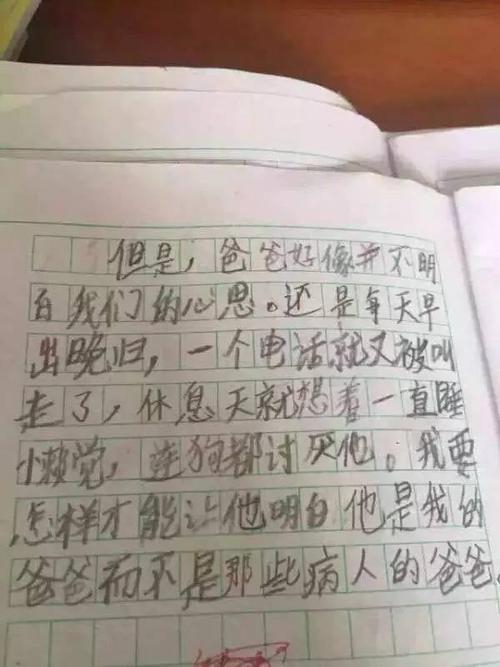 但是，爸爸好像并不明
白我们的心思。还是每天早
出晚归，一个电话就又被叫
走了，休息天就想着一直睡
小懒觉，连狗都讨厌他。我要
怎样才能让他明白他是我的
爸爸而不是那些病人的爸爸。